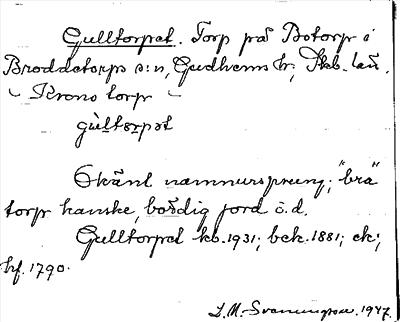 Gulltorpet. Torp på Botorp i
Broddetorps s:n, Gudhems hr, Skb. län.
- Krono torp -
gùltorpət
Okänt namnursprung; "bra"
torp kanske, bördig jord o.d.
Gulltorpet kb. 1931; bek. 1881; ek;
hf. 1790.
1947.